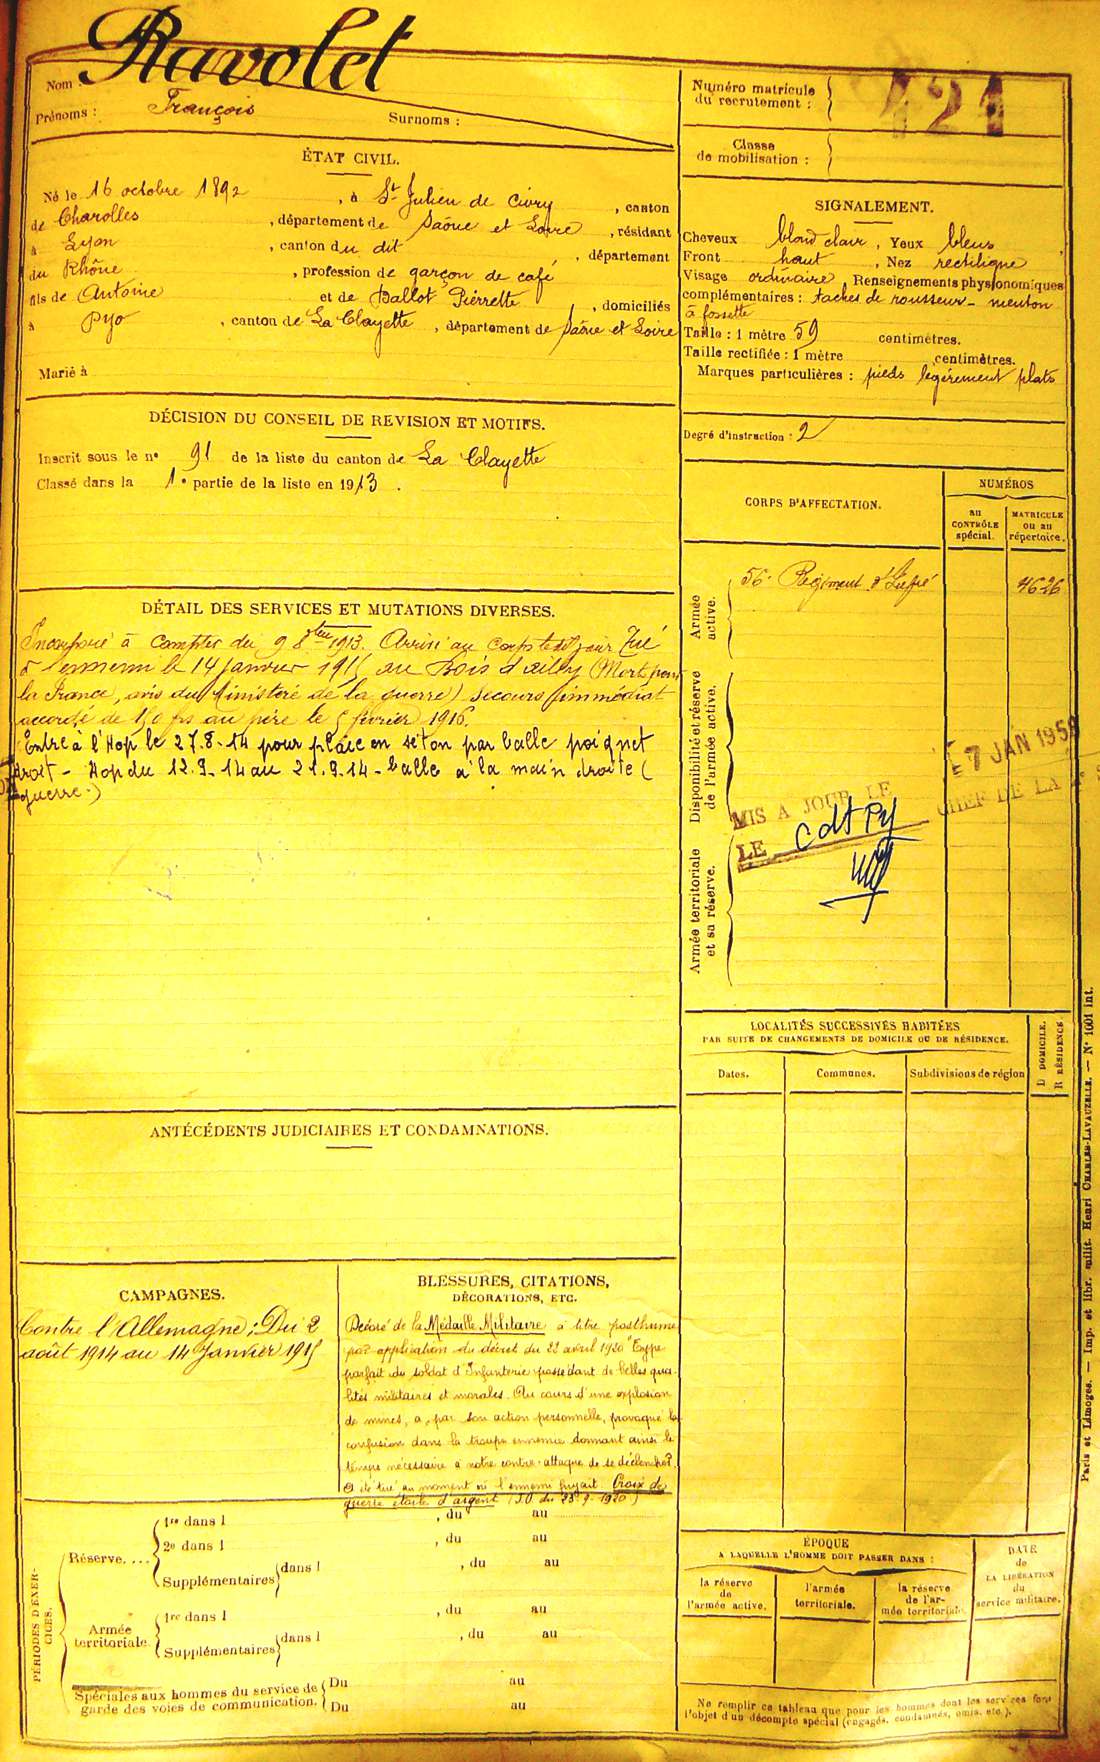 Nom : Ravolet
Prénoms : François Surnoms :
ÉTAT CIVIL.
Né le 16 octobre 1892, à St Julien de Civry, canton
de Charolles, département de Saône et Loire, résidant
à Lyon, canton du dit, département
du Rhône, profession de garçon de café
fils de Antoine et de Ballot Pierrette, domiciliés
à Dyo, canton de La Clayette, département de Saône et Loire
Marié à
DÉCISION DU CONSEIL DE REVISION ET MOTIFS.
Inscrit sous le n° 91 de la liste du canton de La Clayette
Classé dans la 1e partie de la liste en 1913.
DÉTAIL DES SERVICES ET MUTATIONS DIVERSES.
Incorporé à compter du 9 8bre 1913. Arrivé au corps le dit jour Tué
à l'ennemi le 14 janvier 1915 au Bois d'Ailly (Mort pour
la France, avis du Ministère de la guerre) secours immédiat
accordé de 150 frs au père le 5 février 1916.
Entré à l'Hop le 27.8.14 pour plaie en séton par balle poignet
droit - Hop du 12.9.14 au 21.9.14 - balle à la main droite (
guerre.)
ANTÉCÉDENTS JUDICIAIRES ET CONDAMNATIONS.
CAMPAGNES.
Contre l'Allemagne : Du 2
août 1914 au 14 Janvier 1915
BLESSURES, CITATIONS,
DÉCORATIONS, ETC.
Décoré de la Médaille Militaire à titre posthume
par application du décret du 22 avril 1920 "Type
parfait du soldat d'Infanterie possédant de belles qua-
lités militaires et morales. Au cours d'une explosion
de mines, a, par son action personnelle, provoqué la
confusion dans la troupe ennemie donnant ainsi le
temps nécessaire à notre contre-attaque de se déclencher.
A été tué au moment où l'ennemi fuyait. Croix de
guerre étoile d'argent (J.O. du 23-9-1920)
PÉRIODES D'EXER-
CICES.
Réserve....
1re dans l , du au
2e dans l , du au
Supplémentaires dans l , du au
Armée
territoriale.
1re dans l , du au
Supplémentaires dans l , du au
Spéciales aux hommes du service de
garde des voies de communication.
Du au
Du au
Numéro matricule
du recrutement : 121
Classe
de mobilisation :
SIGNALEMENT.
Cheveux blond clair, Yeux bleus
Front haut, Nez rectiligne
Visage ordinaire Renseignements physionomiques
complémentaires : taches de rousseur - menton
à fossette
Taille : 1 mètre 59 centimètres.
Taille rectifiée : 1 mètre centimètres.
Marques particulières : pieds légèrement plats
Degré d'instruction : 2
CORPS D'AFFECTATION.
NUMÉROS
au
CONTRÔLE
spécial.
MATRICULE
ou au
répertoire.
Armée
active.
56e Régiment d'Infrie 4626
Disponibilité et réserve
de l'armée active.
7 JAN 1959
MIS A JOUR LE
CHEF DE LA
LE Cdt Py
Armée territoriale
et sa réserve.
LOCALITÉS SUCCESSIVES HABITÉES
PAR SUITE DE CHANGEMENTS DE DOMICILE OU DE RÉSIDENCE.
D DOMICILE.
R RÉSIDENCE
Dates. Communes. Subdivisions de région
ÉPOQUE
A LAQUELLE L'HOMME DOIT PASSER DANS :
la réserve
de
l'armée active.
l'armée
territoriale.
la réserve
de l'ar-
mée territoriale.
DATE
de
LA LIBÉRATION
du
service militaire.
Ne remplir ce tableau que pour les hommes dont les services font
l'objet d'un décompte spécial (engagés, condamnés, omis, etc.).
Paris et Limoges. — Imp. et libr. milit. Henri CHARLES-LAVAUZELLE. — N° 1001 int.